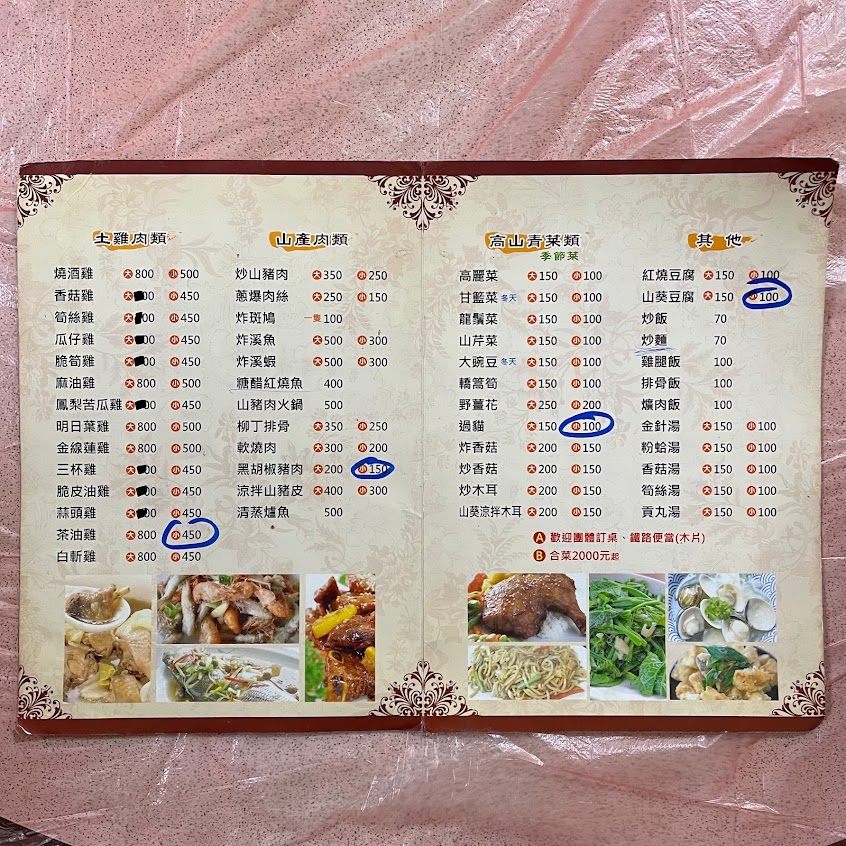 土雞肉類
燒酒雞 大800 小500
香菇雞 大00 小450
筍絲雞 大00 小450
瓜仔雞 大00 小450
脆筍雞 大00 小450
麻油雞 大800 小500
鳳梨苦瓜雞 大00 小450
明日葉雞 大800 小500
金線蓮雞 大800 小500
三杯雞 大00 小450
脆皮油雞 大00 小450
蒜頭雞 大00 小450
茶油雞 大800 小450
白斬雞 大800 小450
山產肉類
炒山豬肉 大350 小250
蔥爆肉絲 大250 小150
炸斑鳩 一隻100
炸溪魚 大500 小300
炸溪蝦 大500 小300
糖醋紅燒魚 400
山豬肉火鍋 500
柳丁排骨 大350 小250
軟燒肉 大300 小200
黑胡椒豬肉 大200 小150
涼拌山豬皮 大400 小300
清蒸爐魚 500
高山青菜類
季節菜
高麗菜 大150 小100
甘籃菜 冬天 大150 小100
龍鬚菜 大150 小100
山芹菜 大150 小100
大豌豆 冬天 大150 小100
轎篙筍 大150 小100
野薑花 大250 小200
過貓 大150 小100
炸香菇 大200 小150
炒香菇 大200 小150
炒木耳 大200 小150
山葵涼拌木耳 大200 小150
其他
紅燒豆腐 大150 小100
山葵豆腐 大150 小100
炒飯 70
炒麵 70
雞腿飯 100
排骨飯 100
爌肉飯 100
金針湯 大150 小100
粉蛤湯 大150 小100
香菇湯 大150 小100
筍絲湯 大150 小100
貢丸湯 大150 小100
A 歡迎團體訂桌、鐵路便當(木片)
B 合菜2000元起